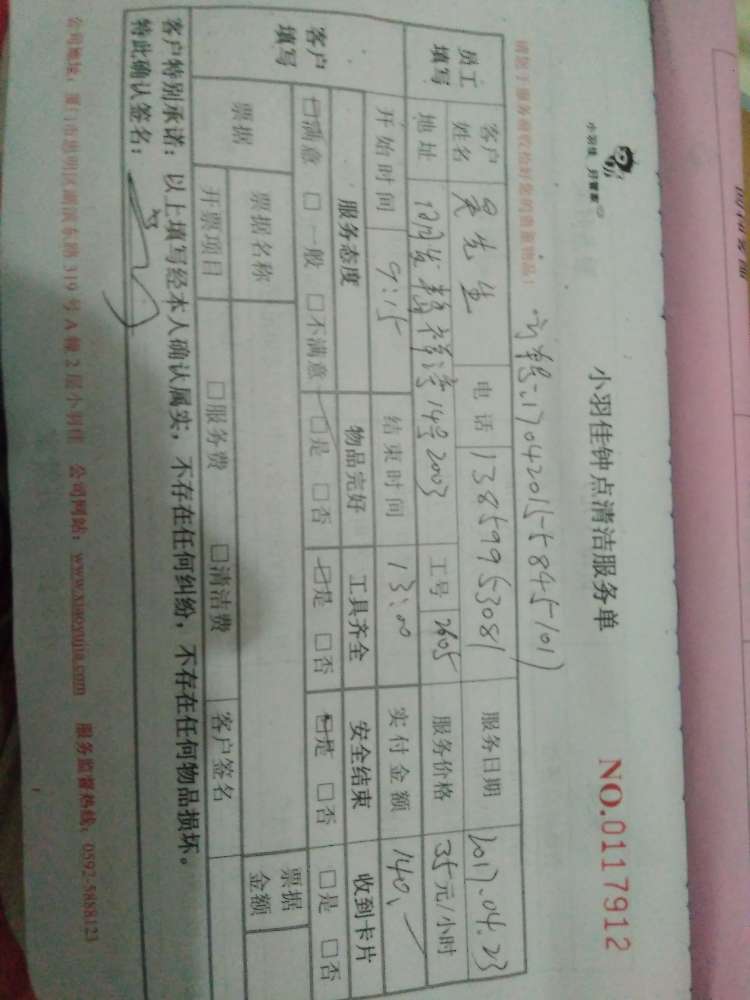 小羽佳 好管家
小羽佳钟点清洁服务单
NO.0117912
170420155845101
请您于服务前收拾好您的贵重物品！
员工填写
客户姓名 吴先生 电话 13859953081 服务日期 2017.04.23
地址 14号2003 工号 2605 服务价格 35元/小时
开始时间 9:15 结束时间 13:00 实付金额 140.
客户填写
服务态度 物品完好 工具齐全 安全结束 收到卡片
☑满意 □一般 □不满意 ☑是 □否 ☑是 □否 ☑是 □否 □是 □否
票据 票据名称 票据金额
开票项目 □服务费 □清洁费 客户签名
客户特别承诺：以上填写经本人确认属实，不存在任何纠纷，不存在任何物品损坏。
特此确认签名：
公司地址：厦门市思明区湖滨东路319号A幢2层小羽佳 公司网站：www.xiaoyujia.com 服务监督热线：0592-5888123